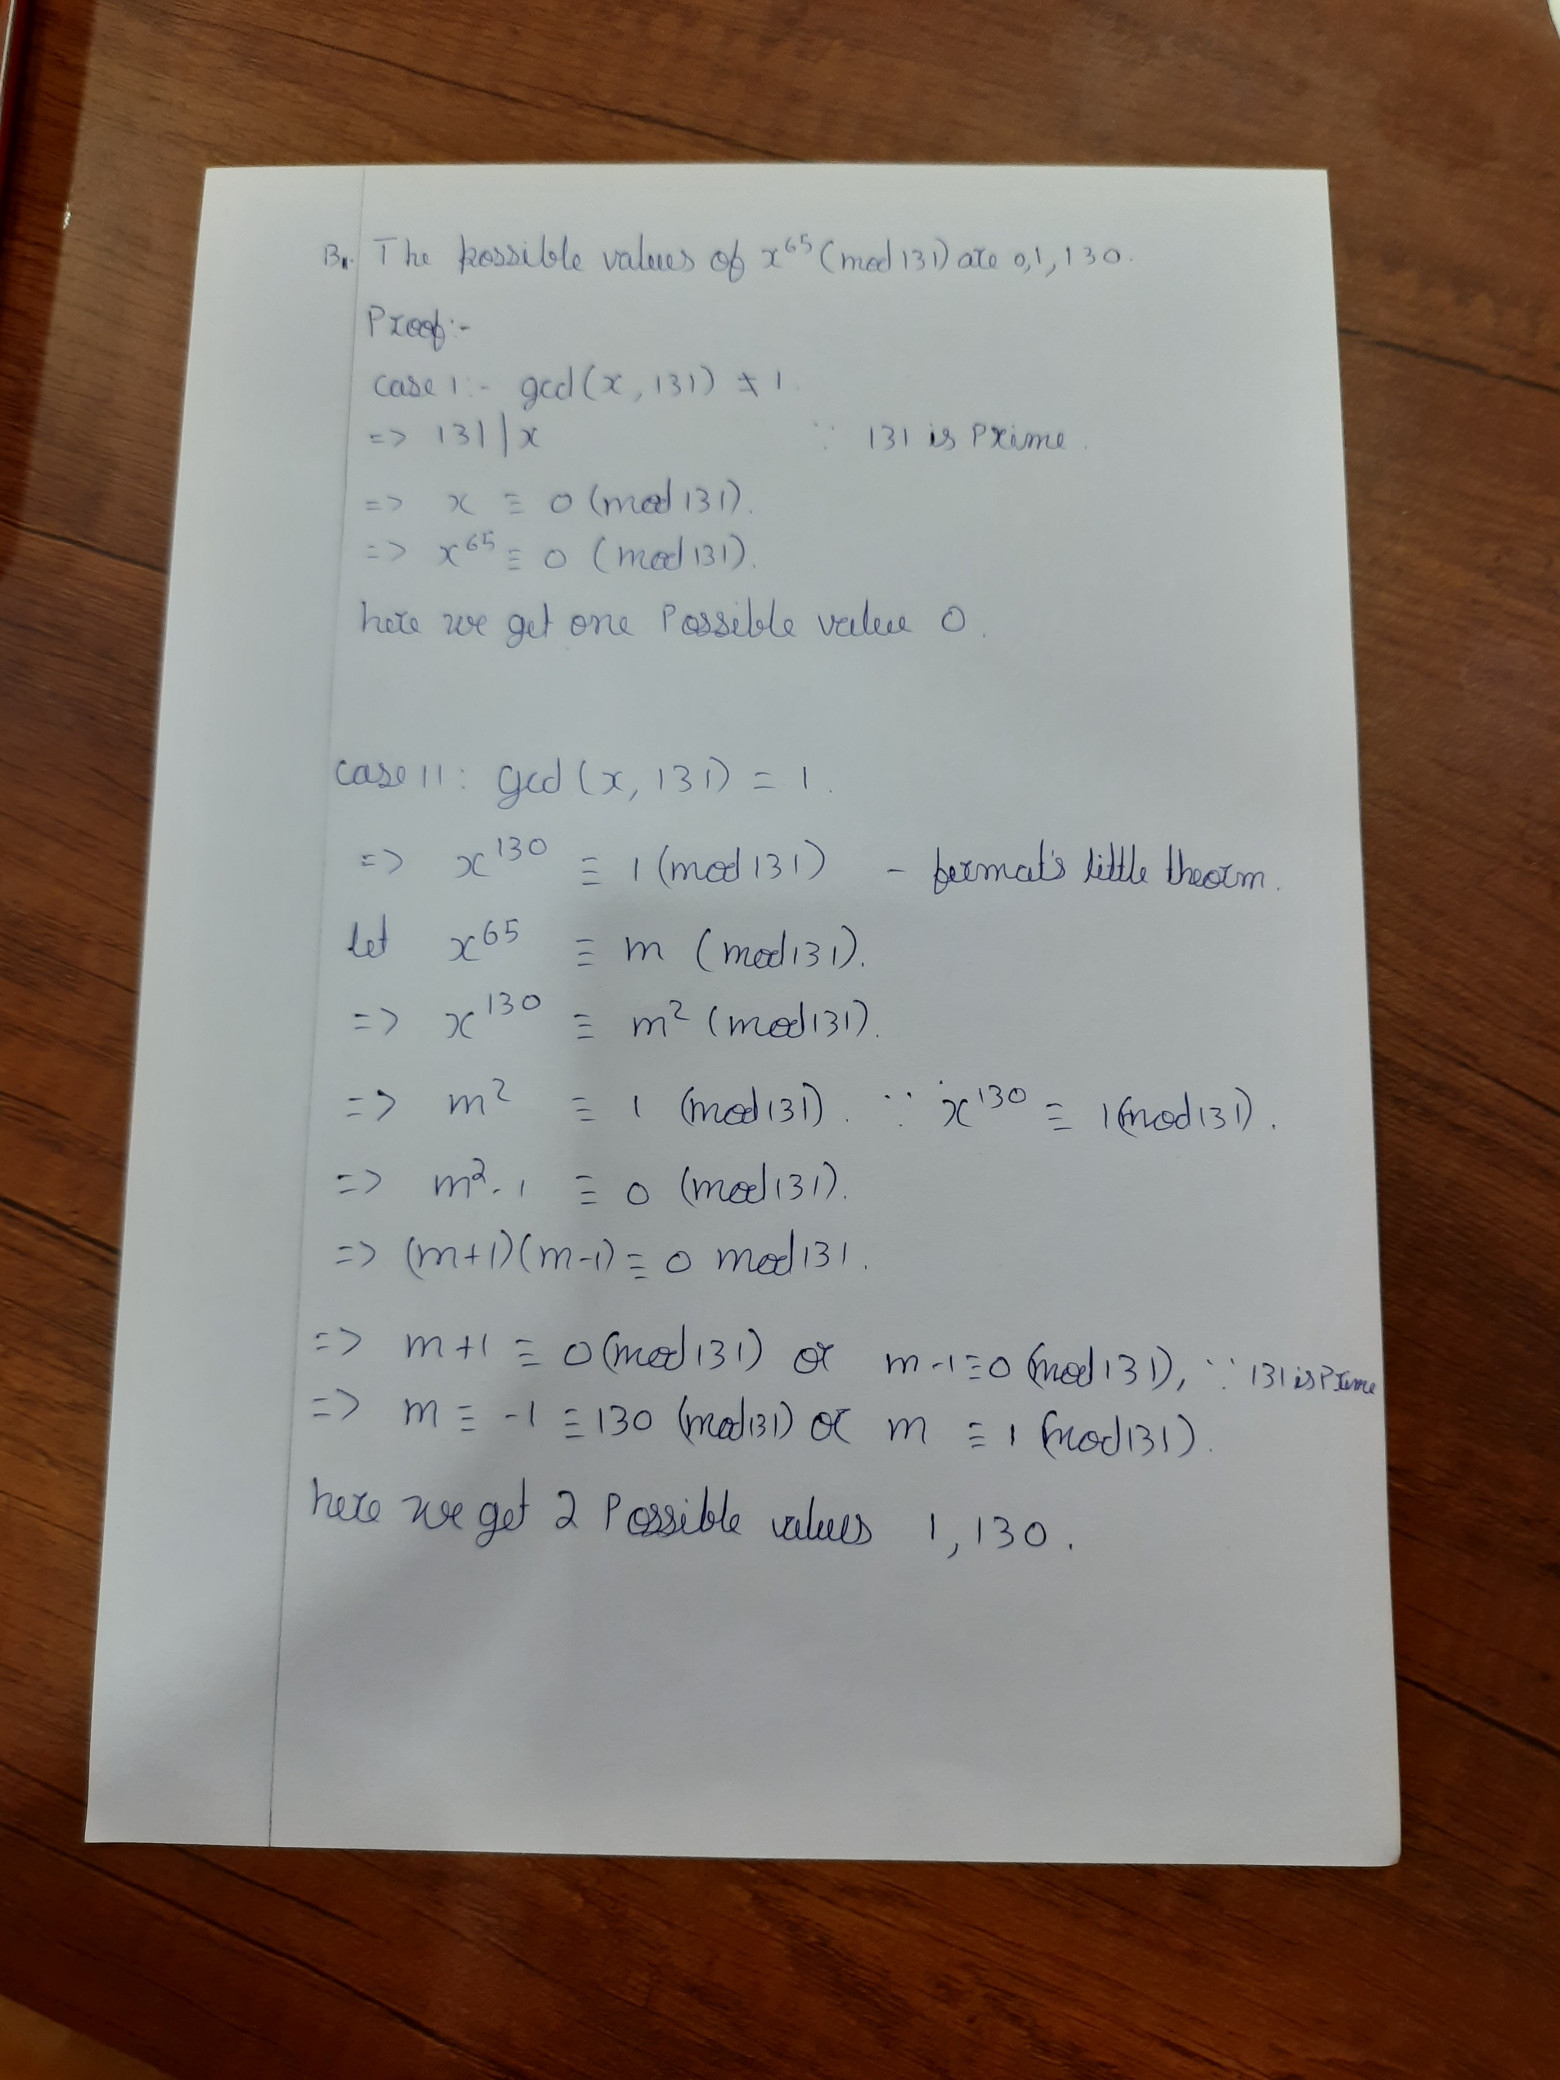 B. The possible values of x^65 (mod 131) are 0,1,130.
Proof:-
Case I:- gcd(x, 131) ≠ 1.
=> 131|x ∵ 131 is Prime.
=> x ≡ 0 (mod 131).
=> x^65 ≡ 0 (mod 131).
here we get one Possible value 0.
Case II: gcd(x, 131) = 1.
=> x^130 ≡ 1 (mod 131) - fermat's little theorm.
let x^65 ≡ m (mod 131).
=> x^130 ≡ m^2 (mod 131).
=> m^2 ≡ 1 (mod 131). ∵ x^130 ≡ 1 (mod 131).
=> m^2 - 1 ≡ 0 (mod 131).
=> (m+1)(m-1) ≡ 0 mod 131.
=> m+1 ≡ 0 (mod 131) or m-1 ≡ 0 (mod 131), ∵ 131 is Prime
=> m ≡ -1 ≡ 130 (mod 131) or m ≡ 1 (mod 131).
here we get 2 Possible values 1, 130.